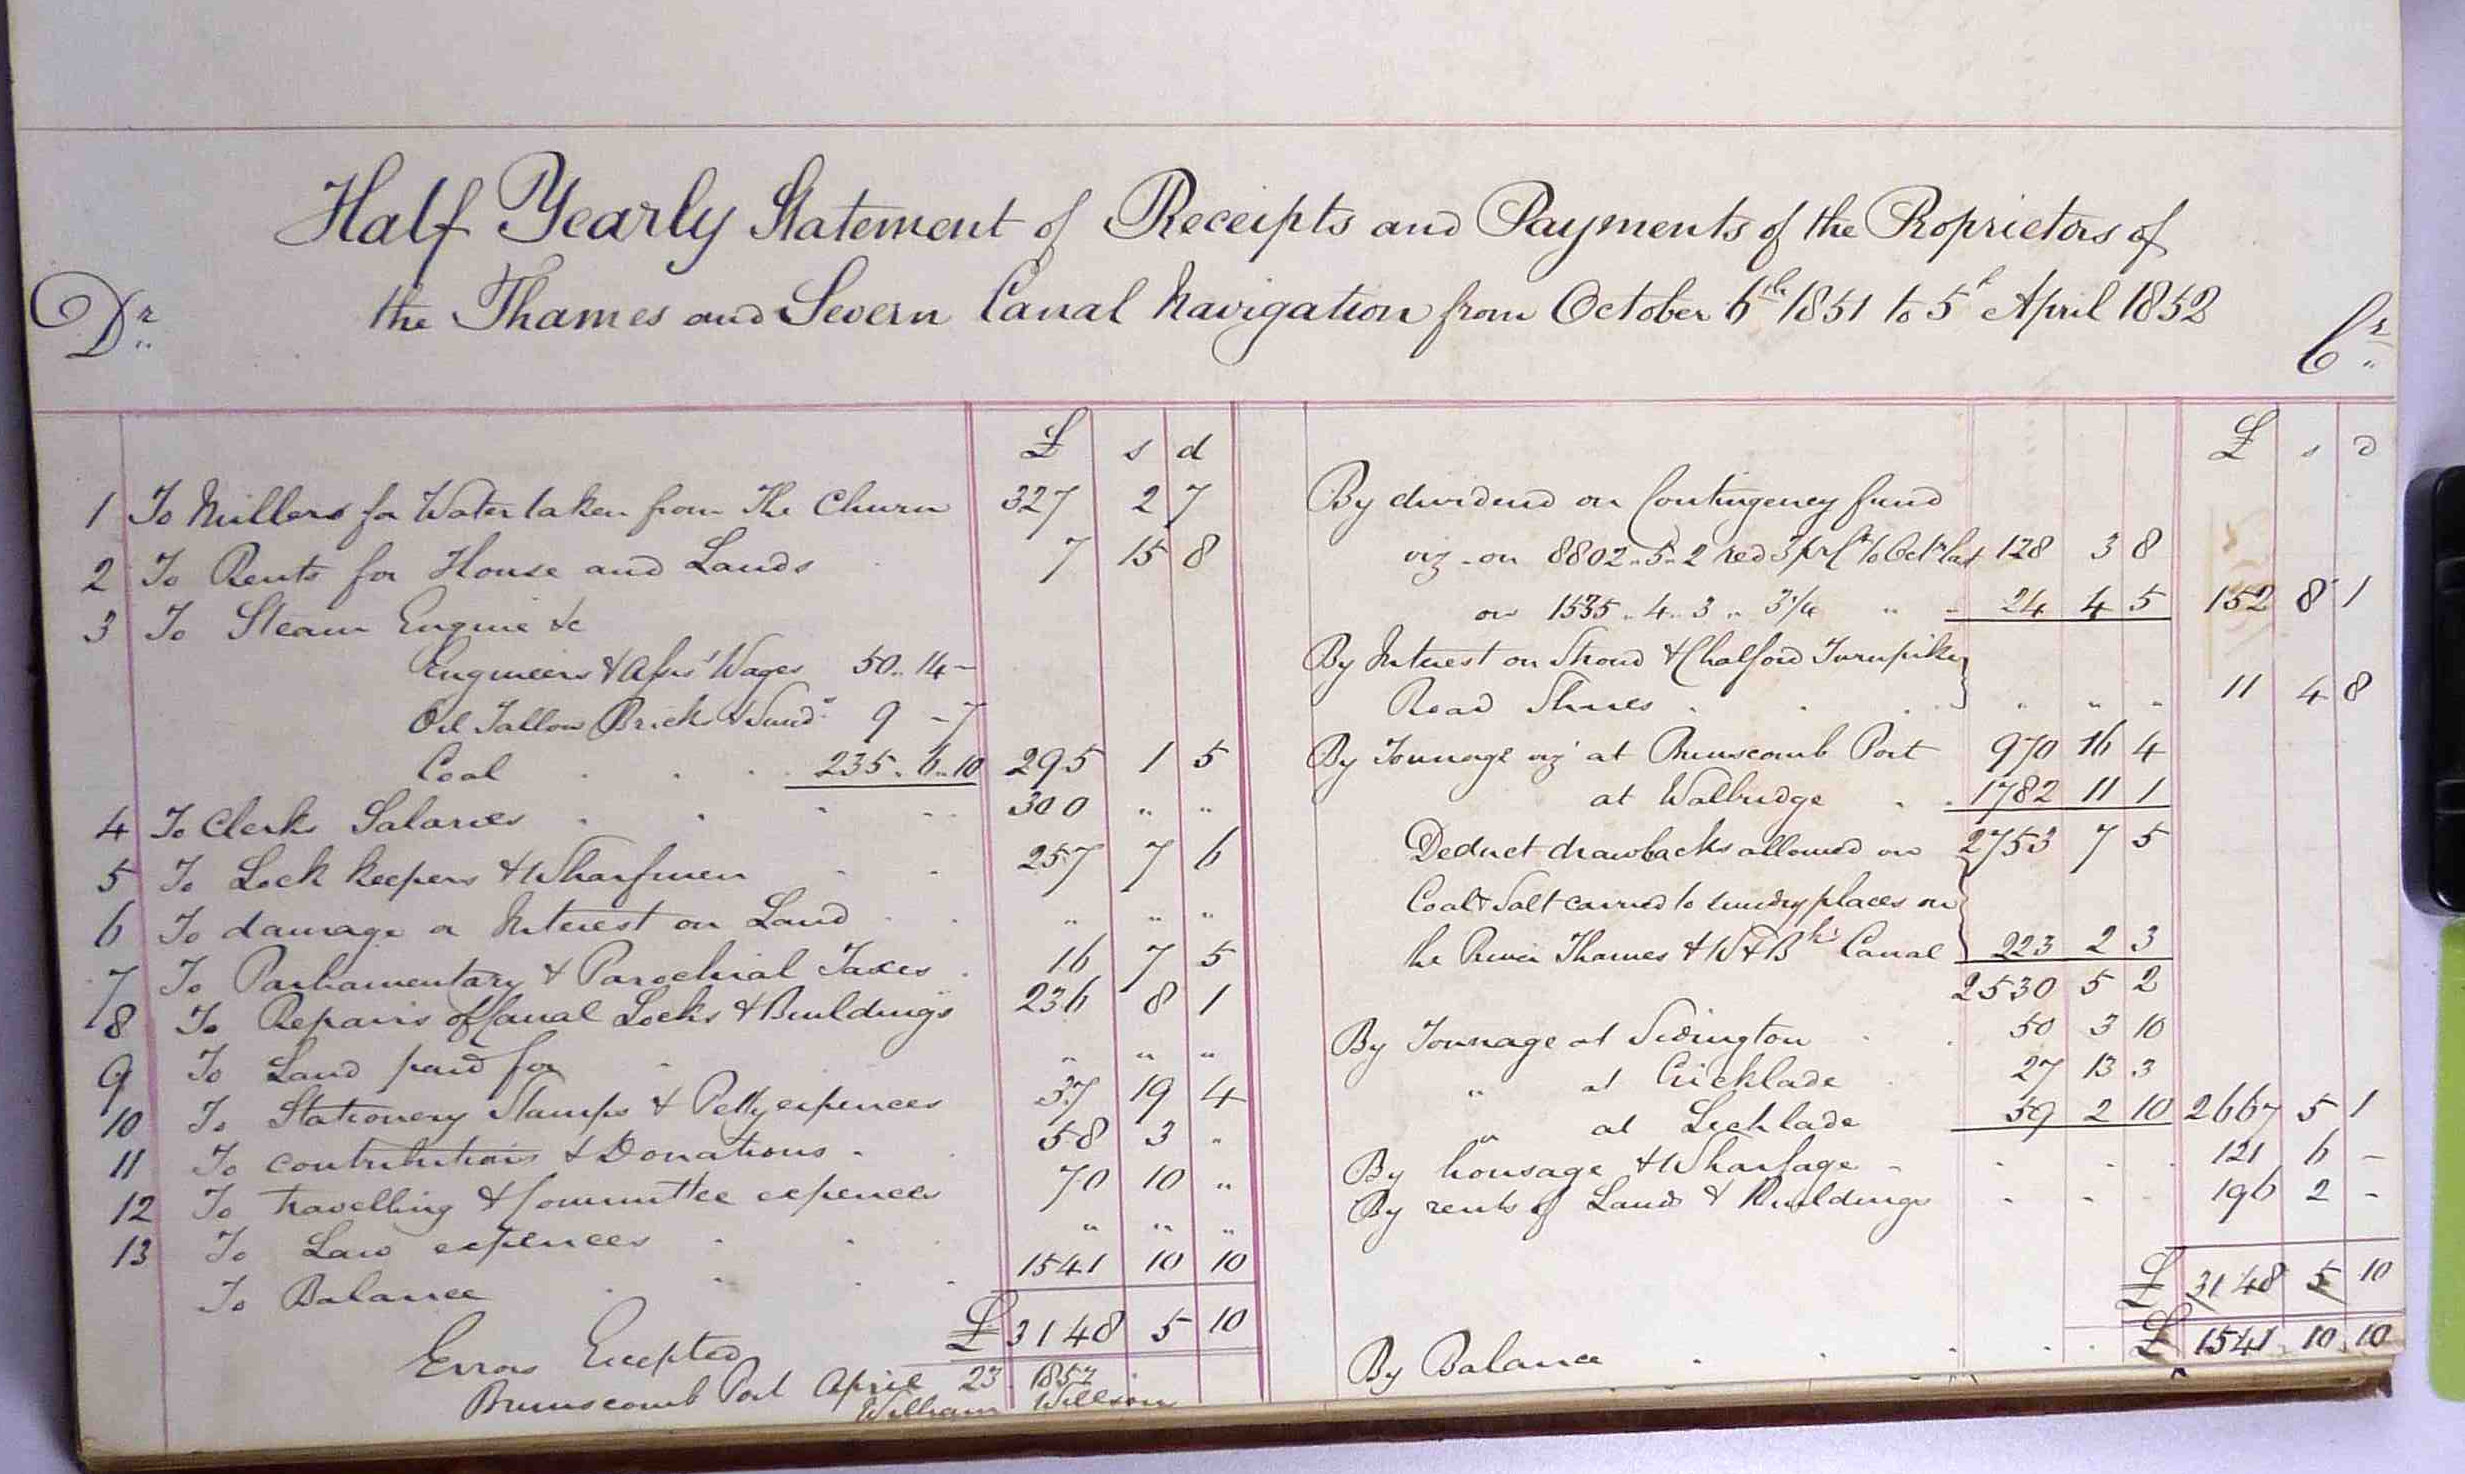 Half Yearly Statement of Receipts and Payments of the Proprietors of
Dr the Thames and Severn Canal Navigation from October 6th 1851 to 5th April 1852 Cr
£ s d
1 To Millers for Water taken from The Churn 327 2 7
2 To Rents for House and Lands 7 15 8
3 To Steam Engine &c
Engineers & Assrs' Wages 50 .. 14 -
Oil Tallow Brick & Sunds 9 - 7
Coal 235 .. 6 .. 10 295 1 5
4 To Clerks Salaries 300 " "
5 To Lock keepers & Wharfmen 257 7 6
6 To damage or Interest on Land " " "
7 To Parliamentary & Parochial Taxes 16 7 5
8 To Repairs of Canal Locks & Buildings 236 8 1
9 To Land paid for " " "
10 To Stationery Stamps & Petty expences 37 19 4
11 To contributions & Donations 58 3 "
12 To travelling & Committee expences 70 10 "
13 To Law expences " " "
To Balance 1541 10 10
£ 3148 5 10
Errors Excepted
Brimscomb Port April 23 1852
William Willson
£ s d
By dividend on Contingency fund
viz - on 8802 .. 5 .. 2 red 3 pr Ct to Octr last 128 3 8
on 1535 .. 4 .. 3 .. 3¼ " 24 4 5 152 8 1
By Interest on Stroud & Chalford Turnpike
Road Shares " " " 11 4 8
By Tonnage viz' at Brimscomb Port 970 16 4
at Wallbridge 1782 11 1
Deduct drawbacks allowed on 2753 7 5
Coal & Salt carried to sundry places on
the River Thames & W & Bks Canal 223 2 3
2530 5 2
By Tonnage at Sidington 50 3 10
" at Cricklade 27 13 3
" at Lechlade 59 2 10 2667 5 1
By housage & Wharfage - 121 6 -
By rents of Lands & Buildings 196 2 -
£ 3148 5 10
By Balance £ 1541 10 10